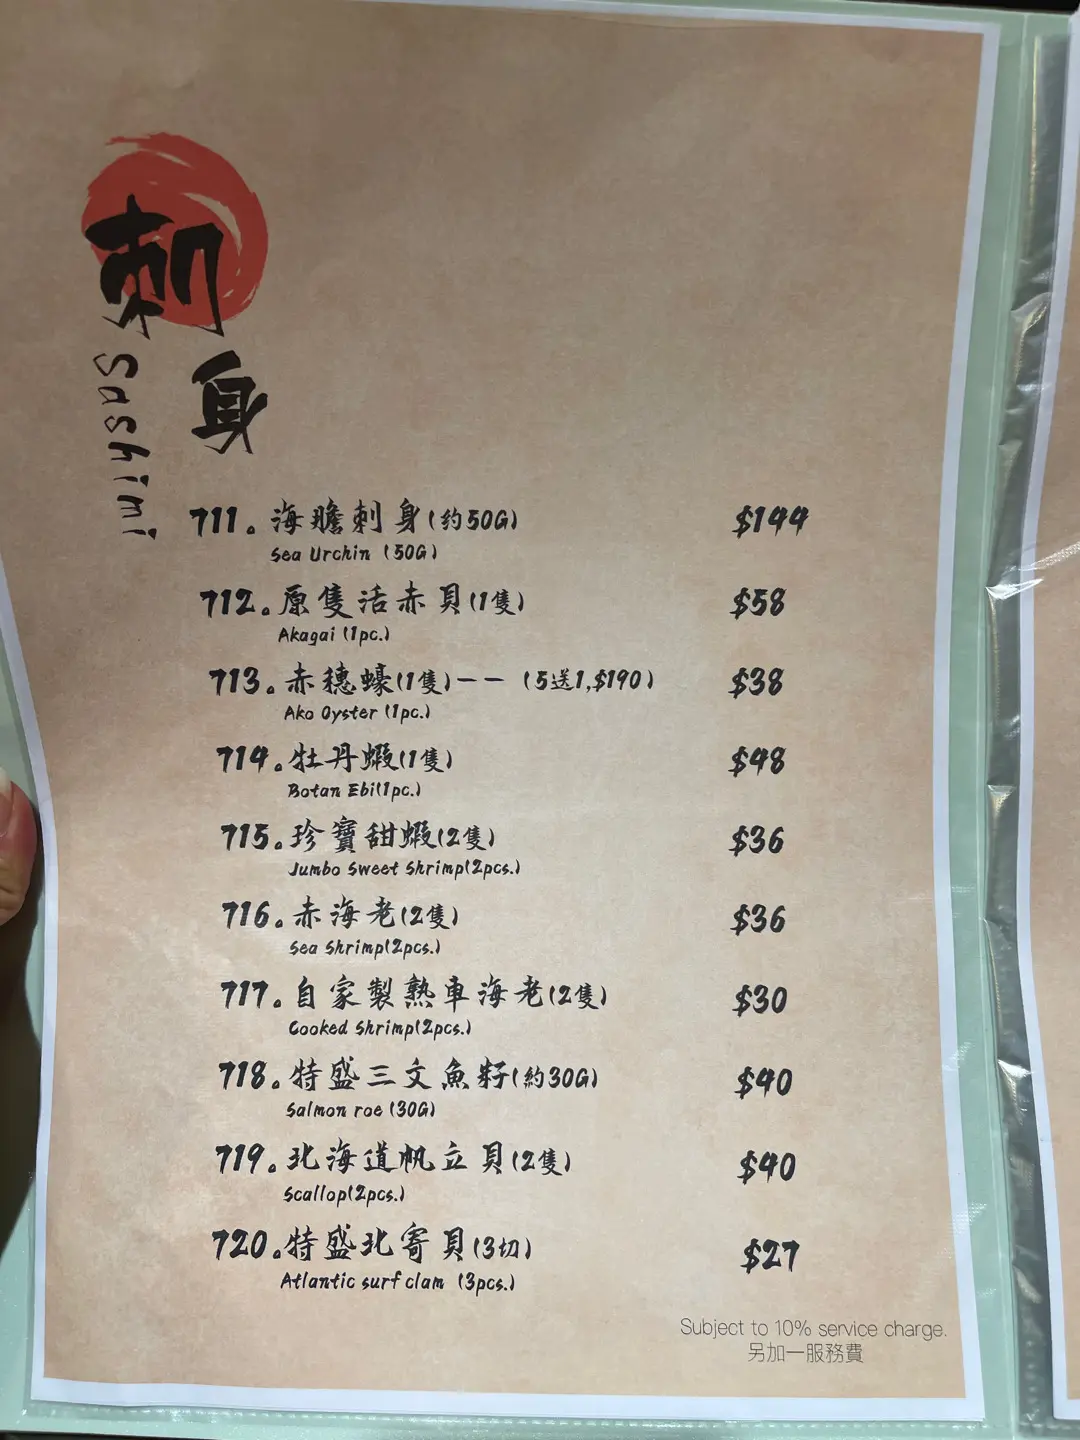 刺身
Sashimi
711. 海膽刺身(約50G) $144
Sea Urchin (50G)
712. 原隻活赤貝(1隻) $58
Akagai (1pc.)
713. 赤穗蠔(1隻)—— (5送1,$190) $38
Ako Oyster (1pc.)
714. 牡丹蝦(1隻) $48
Botan Ebi(1pc.)
715. 珍寶甜蝦(2隻) $36
Jumbo Sweet Shrimp(2pcs.)
716. 赤海老(2隻) $36
Sea Shrimp(2pcs.)
717. 自家製熟車海老(2隻) $30
Cooked Shrimp(2pcs.)
718. 特盛三文魚籽(約30G) $40
Salmon roe (30G)
719. 北海道帆立貝(2隻) $40
Scallop(2pcs.)
720. 特盛北寄貝(3切) $27
Atlantic surf clam (3pcs.)
Subject to 10% service charge.
另加一服務費